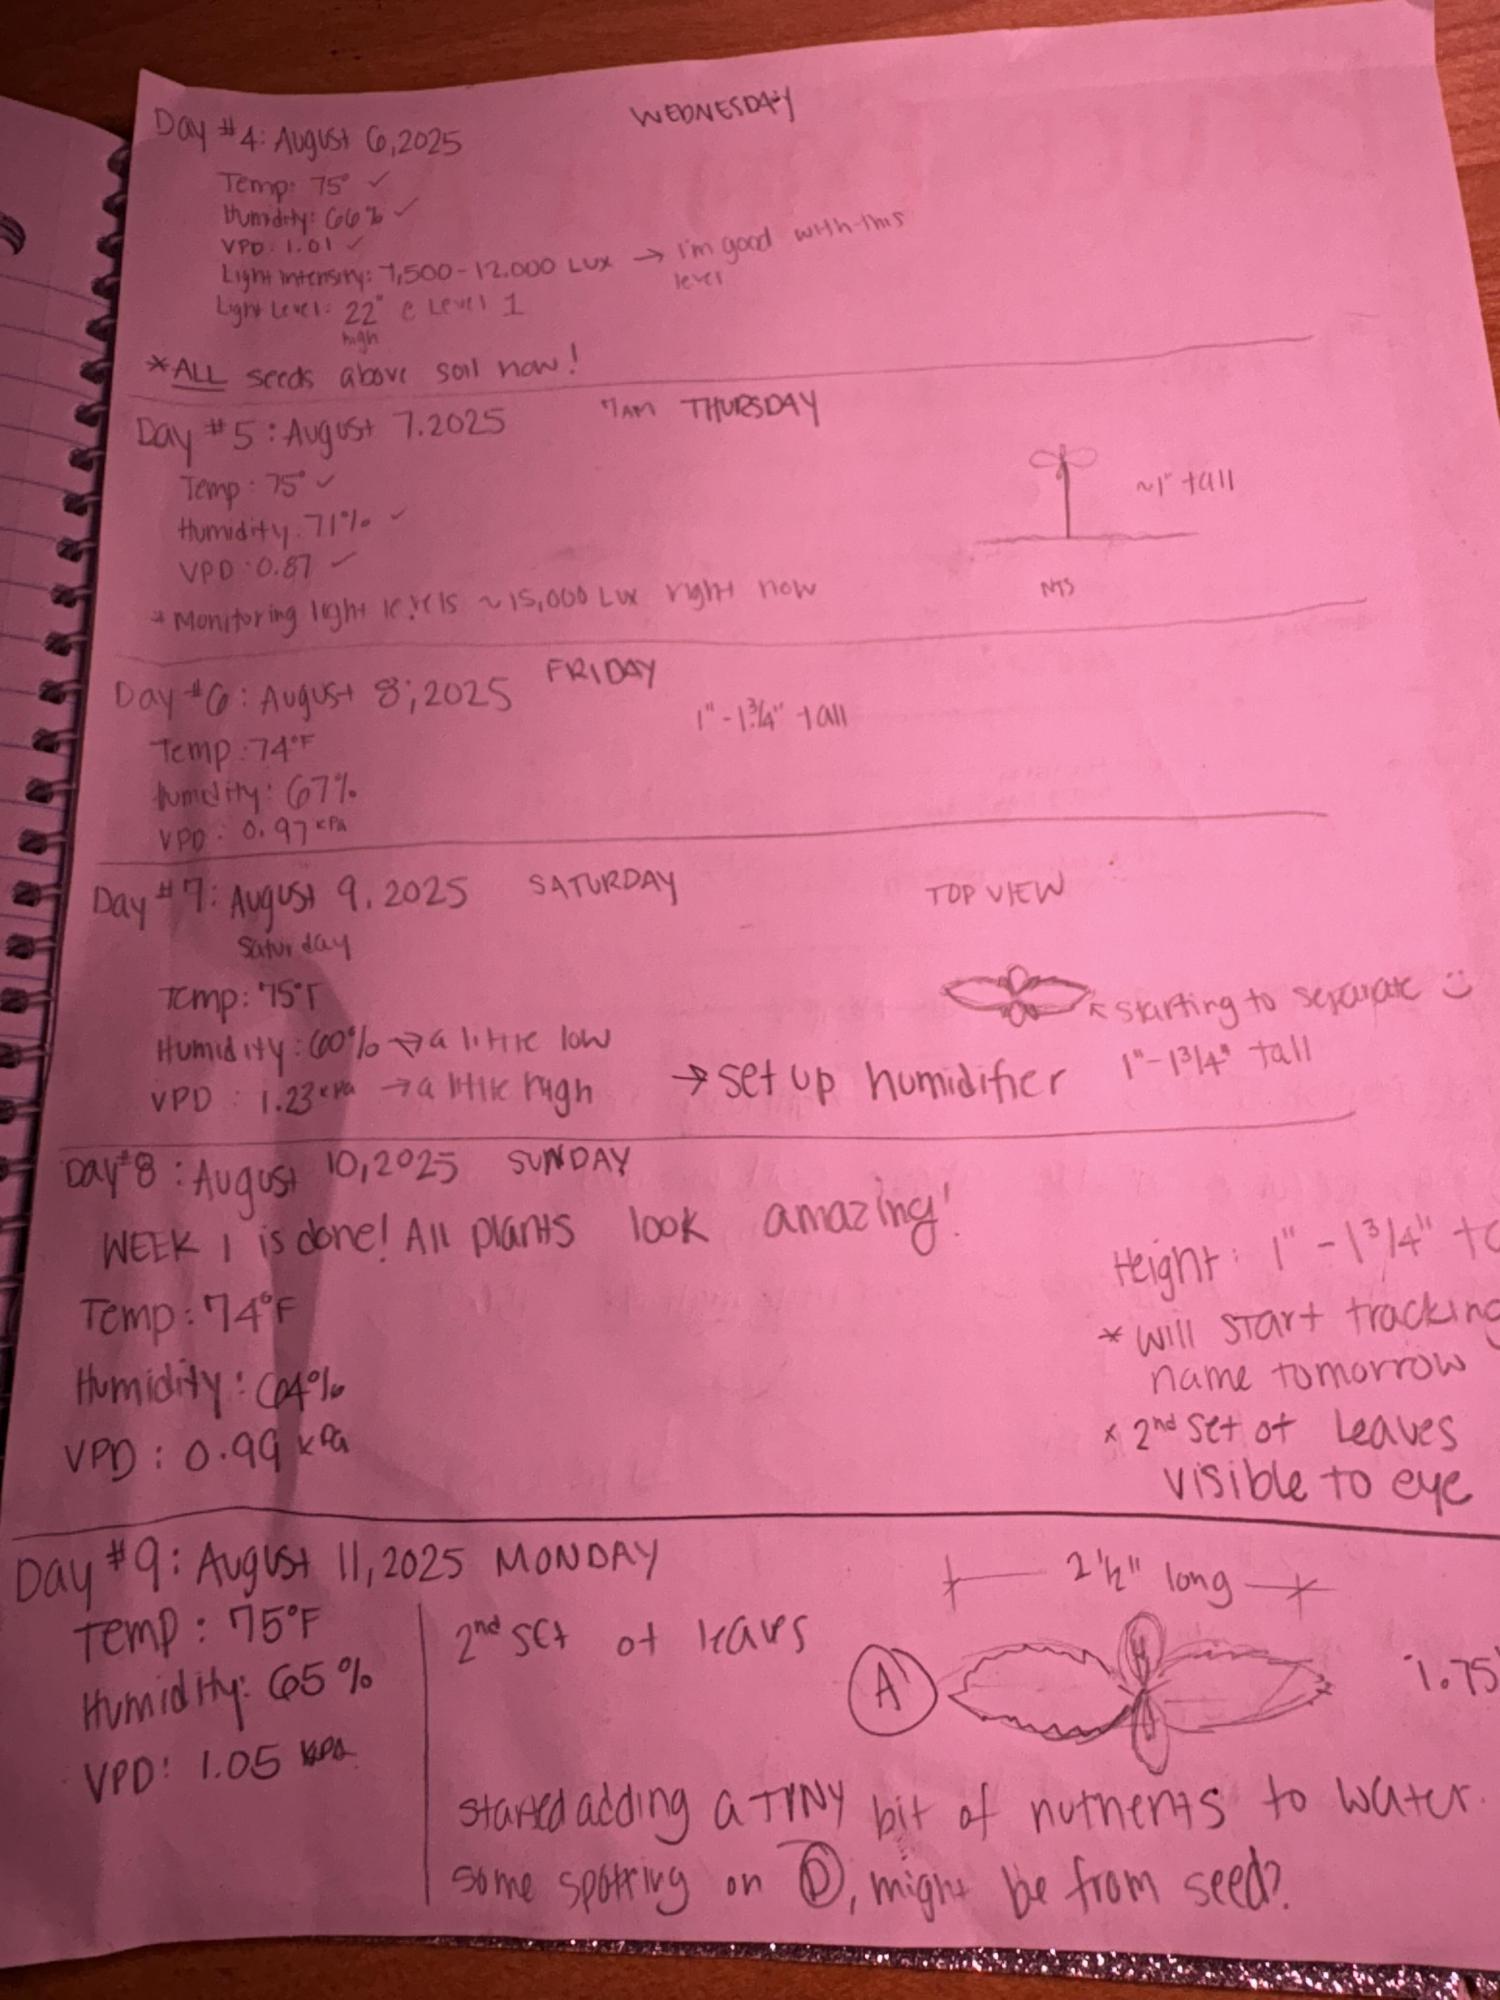 WEDNESDAY
Day #4: August 6, 2025
Temp: 75° ✓
Humidity: 66% ✓
VPD: 1.01 ✓
Light intensity: 7,500-12,000 Lux → i'm good with this
level
Light Level: 22" @ Level 1
high
*ALL seeds above soil now!
Day #5: August 7, 2025 7AM THURSDAY
Temp: 75° ✓
Humidity: 71% ✓
VPD: 0.87 ✓
~1" tall
NTS
*Monitoring light levels ~15,000 Lux right now
Day #6: August 8, 2025 FRIDAY
1" - 1 3/4" tall
Temp: 74°F
Humidity: 67%
VPD: 0.97 kPa
Day #7: August 9, 2025 SATURDAY
Saturday
TOP VIEW
Temp: 75°F
Humidity: 60% → a little low
VPD: 1.23 kPa → a little high → set up humidifier
starting to separate :)
1" - 1 3/4" tall
Day #8: August 10, 2025 SUNDAY
WEEK 1 is done! All plants look amazing!
Temp: 74°F
Humidity: 64%
VPD: 0.99 kPa
Height: 1" - 1 3/4"
* will start tracking
name tomorrow
* 2nd set of leaves
visible to eye
Day #9: August 11, 2025 MONDAY
Temp: 75°F
Humidity: 65%
VPD: 1.05 kPa
2nd set of leaves
2 1/2" long
A
1.75"
started adding a TINY bit of nutrients to water.
some spotting on D, might be from seed?